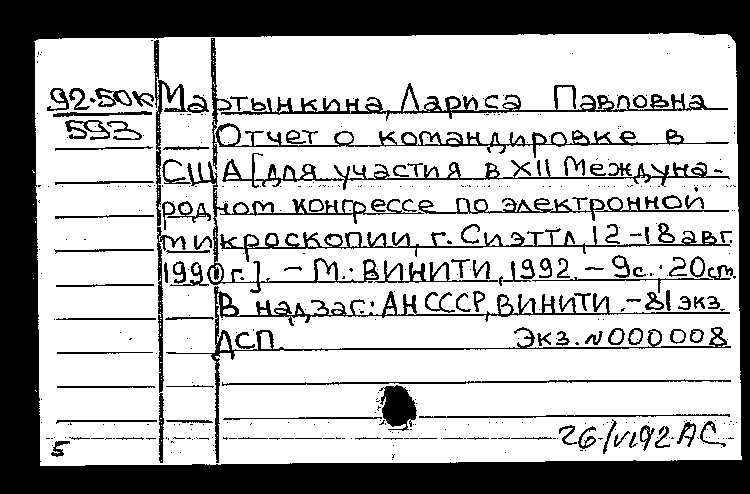 92-50к Мартынкина, Лариса Павловна
593 Отчет о командировке в
США [для участия в XII Междуна-
родном конгрессе по электронной
микроскопии, г. Сиэттл, 12-18 авг.
1990 г.]. - М.: ВИНИТИ, 1992. - 9с.; 20см.
В надзаг.: АН СССР, ВИНИТИ. - 81 экз.
ДСП. Экз. № 000008
26/VI92 АС
5